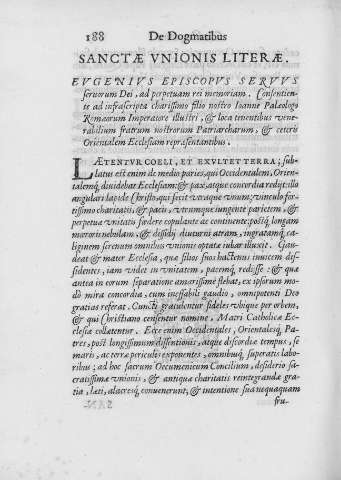 188 De Dogmatibus
SANCTÆ VNIONIS LITERÆ.
EVGENIVS EPISCOPVS SERVVS
seruorum Dei, ad perpetuam rei memoriam. Consentien-
te ad infrascripta charissimo filio nostro Ioanne Palæologo
Romæorum Imperatore illustri, & loca tenentibus vene-
rabilium fratrum nostrorum Patriarcharum, & ceteris
Orientalem Ecclesiam repræsentantibus.
LÆTENTVR COELI, ET EXVLTET TERRA; sub-
latus est enim de medio paries, qui Occidentalem, Orien-
talemq́; diuidebat Ecclesiam; & pax, atque concordia redijt: illo
angulari lapide Christo, qui fecit vtraque vnum; vinculo for-
tissimo charitatis, & pacis, vtrumque iungente parietem, &
perpetuæ vnitatis fœdere copulante ac continente: postq́; longam
mœroris nebulam, & dissidij diuturni atram, ingratamq́; ca-
liginem serenum omnibus vnionis optatæ iubar illuxit. Gau-
deat & mater Ecclesia, quæ filios suos hactenus inuicem dis-
sidentes, iam videt in vnitatem, pacemq́; redijsse: & quæ
antea in eorum separatione amarissimè flebat, ex ipsorum mo-
dò mira concordia, cum ineffabili gaudio, omnipotenti Deo
gratias referat. Cuncti gratulentur fideles vbique per orbem,
& qui Christiano censentur nomine, Matri Catholicæ Ec-
clesiæ collætentur. Ecce enim Occidentales, Orientalesq́; Pa-
tres, post longissimum dissentionis, atque discordiæ tempus, se
maris, ac terræ periculis exponentes, omnibusq́; superatis labo-
ribus; ad hoc sacrum Oecumenicum Concilium, desiderio sa-
cratissimæ vnionis, & antiquæ charitatis reintegrandæ gra-
tia, læti, alacresq́; conuenerunt, & intentione sua nequaquam
fru-